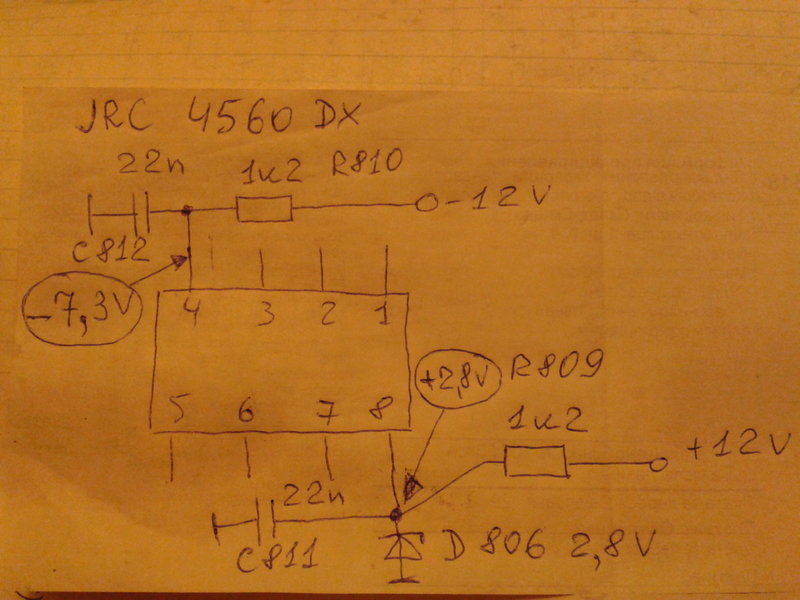 JRC 4560 DX
22n 1к2 R810
-12V
C812
-7,3V
4 3 2 1
+2,8V R809
5 6 7 8
1к2
+12V
22n
C811
D806 2,8V